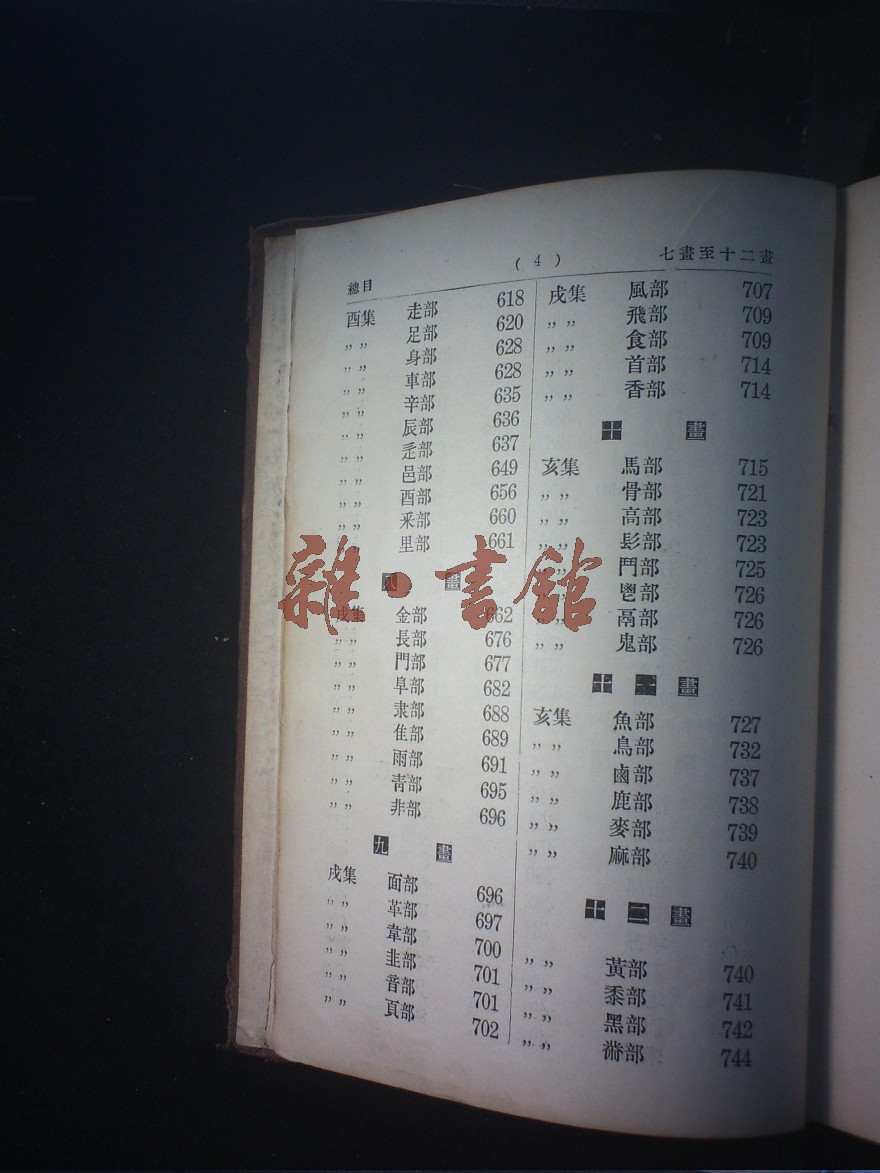 總目
( 4 )
七畫至十二畫
酉集 走部 618
〃〃 足部 620
〃〃 身部 628
〃〃 車部 628
〃〃 辛部 635
〃〃 辰部 636
〃〃 辵部 637
〃〃 邑部 649
〃〃 酉部 656
〃〃 釆部 660
〃 里部 661
八畫
戌集 金部 662
〃〃 長部 676
〃〃 門部 677
〃〃 阜部 682
〃〃 隶部 688
〃〃 隹部 689
〃〃 雨部 691
〃〃 青部 695
〃〃 非部 696
九畫
戌集 面部 696
〃〃 革部 697
〃〃 韋部 700
〃〃 韭部 701
〃〃 音部 701
〃〃 頁部 702
戌集 風部 707
〃〃 飛部 709
〃〃 食部 709
〃〃 首部 714
〃〃 香部 714
十畫
亥集 馬部 715
〃〃 骨部 721
〃〃 高部 723
〃〃 髟部 723
〃〃 鬥部 725
〃 鬯部 726
〃 鬲部 726
〃〃 鬼部 726
十一畫
亥集 魚部 727
〃〃 鳥部 732
〃〃 鹵部 737
〃〃 鹿部 738
〃〃 麥部 739
〃〃 麻部 740
十二畫
〃〃 黃部 740
〃〃 黍部 741
〃〃 黑部 742
〃〃 黹部 744
雜·書館